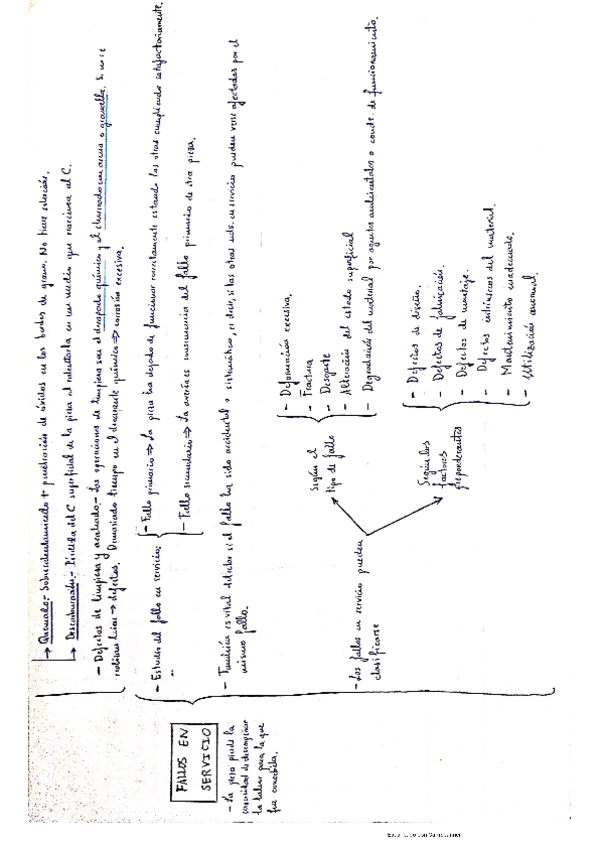 → Quemado:- Sobrecalentamiento + penetración de óxidos en los bordes de grano. No tiene solución.
→ Descarburado:- Pérdida del C superficial de la pieza al calentarla en un medio que reacciona al C.
- Defectos de limpieza y acabado:- Las operaciones de limpieza son el decapado químico y el chorreado con arena o granalla. Si no se
realizan bien → defectos. Demasiado tiempo en el decapante químico ⇒ corrosión excesiva.
FALLOS EN
SERVICIO
- La pieza pierde la
capacidad de desempeñar
la labor para la que
fue concebida.
- Estudio del fallo en servicio:
- Fallo primario ⇒ La pieza ha dejado de funcionar correctamente estando las otras cumpliendo satisfactoriamente.
- Fallo secundario ⇒ La avería es consecuencia del fallo primario de otra pieza.
- También es vital detectar si el fallo ha sido accidental o sistemático, es decir, si las otras uds. en servicio pueden verse afectadas por el
mismo fallo.
- Los fallos en servicio pueden
clasificarse
Según el
tipo de fallo
- Deformación excesiva.
- Fractura
- Desgaste
- Alteración del estado superficial
- Degradación del material por agentes ambientales o condic. de funcionamiento.
Según los
factores
preponderantes
- Defectos de diseño.
- Defectos de fabricación.
- Defectos de montaje.
- Defectos intrínsecos del material.
- Mantenimiento inadecuado.
- Utilización anormal.